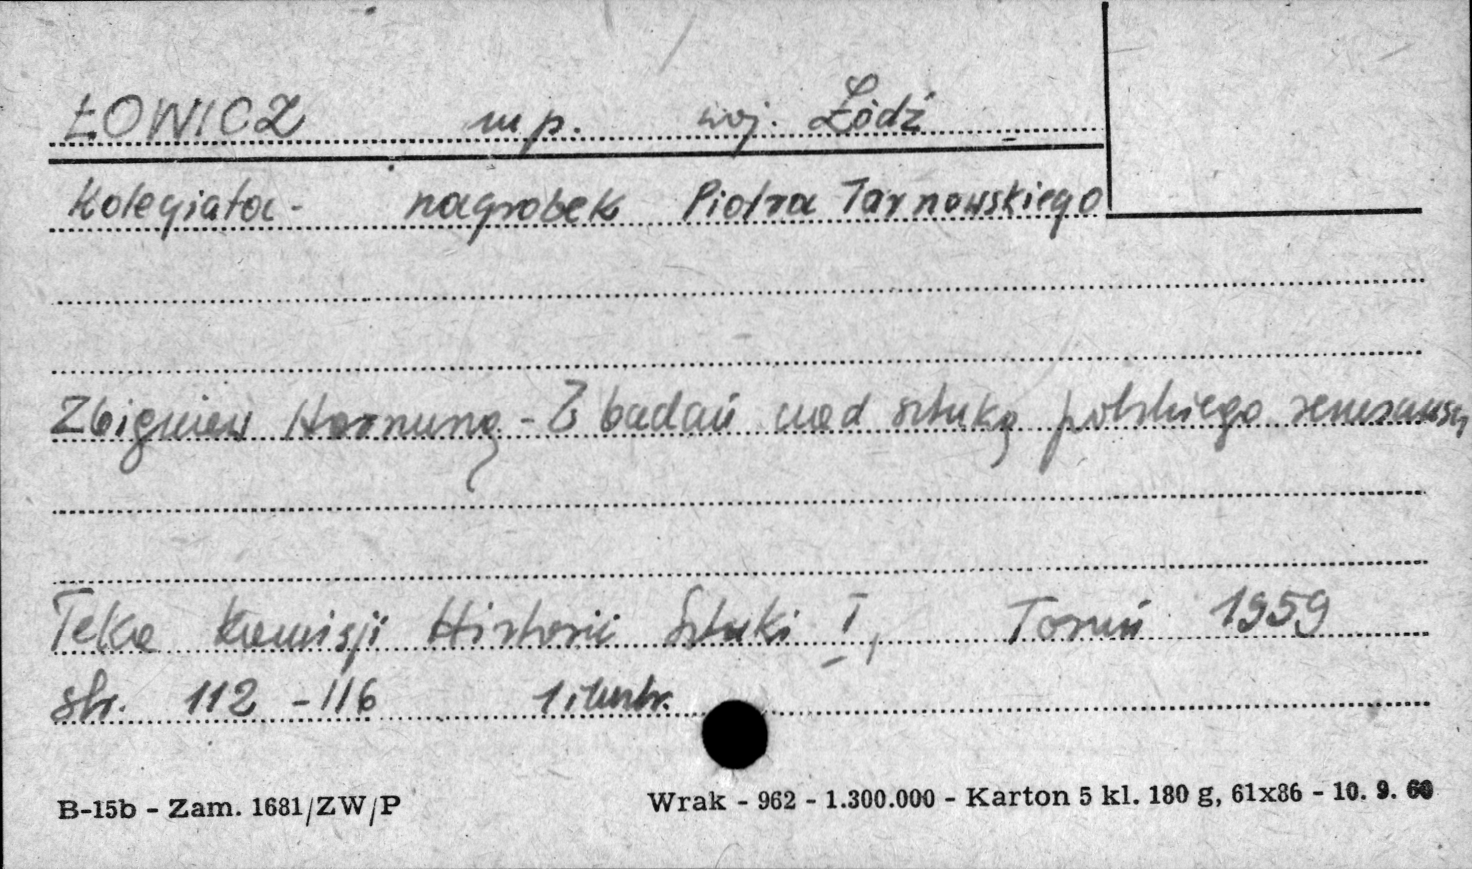 ŁOWICZ m p. woj. Łódź
Kolegiata - nagrobek Piotra Tarnowskiego
Zbigniew Hornung - Z badań nad sztuką polskiego renesansu
Teka Komisji Historii Sztuki I, Toruń 1959
str. 112 - 116 1 ilustr.
B-15b - Zam. 1681/ZW/P Wrak - 962 - 1.300.000 - Karton 5 kl. 180 g, 61x86 - 10. 9. 60